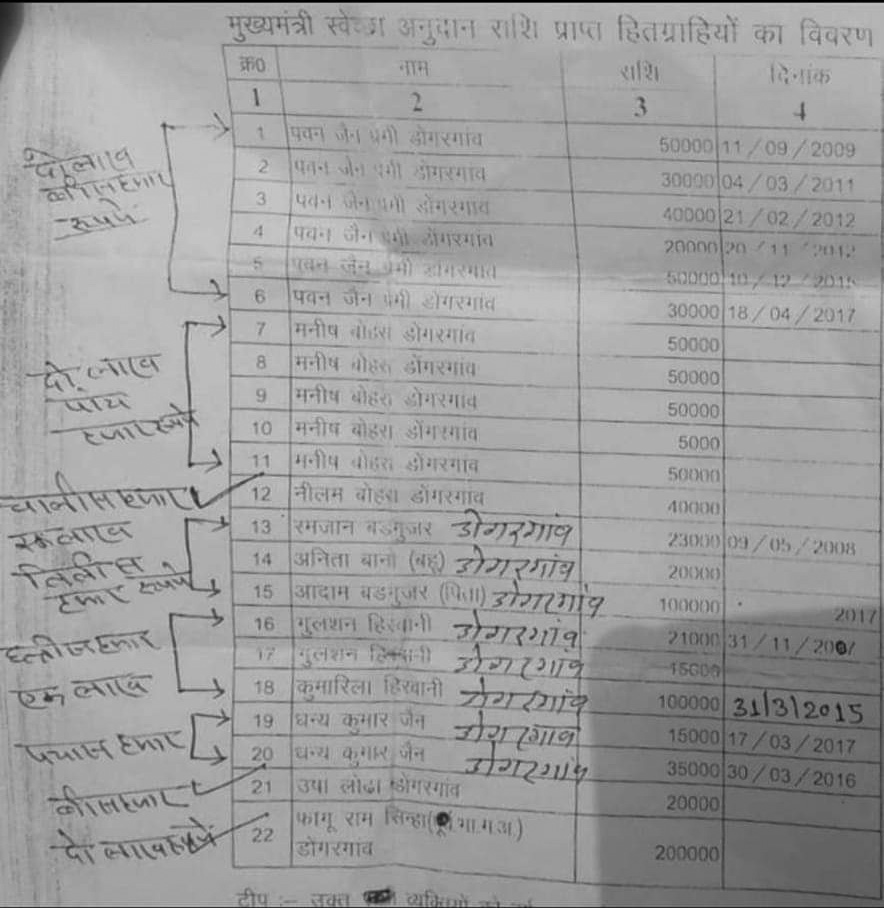 मुख्यमंत्री स्वेच्छा अनुदान राशि प्राप्त हितग्राहियों का विवरण
क्र0 नाम राशि दिनांक
1 2 3 4
1 पवन जैन प्रेमी डोंगरगांव 50000 11/09/2009
2 पवन जैन प्रेमी डोंगरगांव 30000 04/03/2011
3 पवन जैन प्रेमी डोंगरगांव 40000 21/02/2012
4 पवन जैन प्रेमी डोंगरगांव 20000
5 पवन जैन प्रेमी डोंगरगांव 50000
6 पवन जैन प्रेमी डोंगरगांव 30000 18/04/2017
7 मनीष बोहरा डोंगरगांव 50000
8 मनीष बोहरा डोंगरगांव 50000
9 मनीष बोहरा डोंगरगांव 50000
10 मनीष बोहरा डोंगरगांव 5000
11 मनीष बोहरा डोंगरगांव 50000
12 नीलम बोहरा डोंगरगांव 40000
13 रमजान बडगुजर डोंगरगांव 23000 09/05/2008
14 अनिता बानो (बहू) डोंगरगांव 20000
15 आदाम बडगुजर (पिता) डोंगरगांव 100000 2017
16 गुलशन हिरवानी डोंगरगांव 21000
17 गुलशन हिरवानी डोंगरगांव 15000
18 कुमारिला हिरवानी डोंगरगांव 100000 31/3/2015
19 धन्य कुमार जैन डोंगरगांव 15000 17/03/2017
20 धन्य कुमार जैन डोंगरगांव 35000 30/03/2016
21 उषा लोढा डोंगरगांव 20000
22 फागू राम सिन्हा( भा.ग.अ.)
डोंगरगांव 200000
टीप :- उक्त व्यक्तियों
दो लाख
बीस हजार
रूपये
दो लाख
पांच
हजार रूपये
चालीस हजार
एक लाख
हजार रूपये
छत्तीस हजार
एक लाख
पचास हजार
बीस हजार
दो लाख रूपये